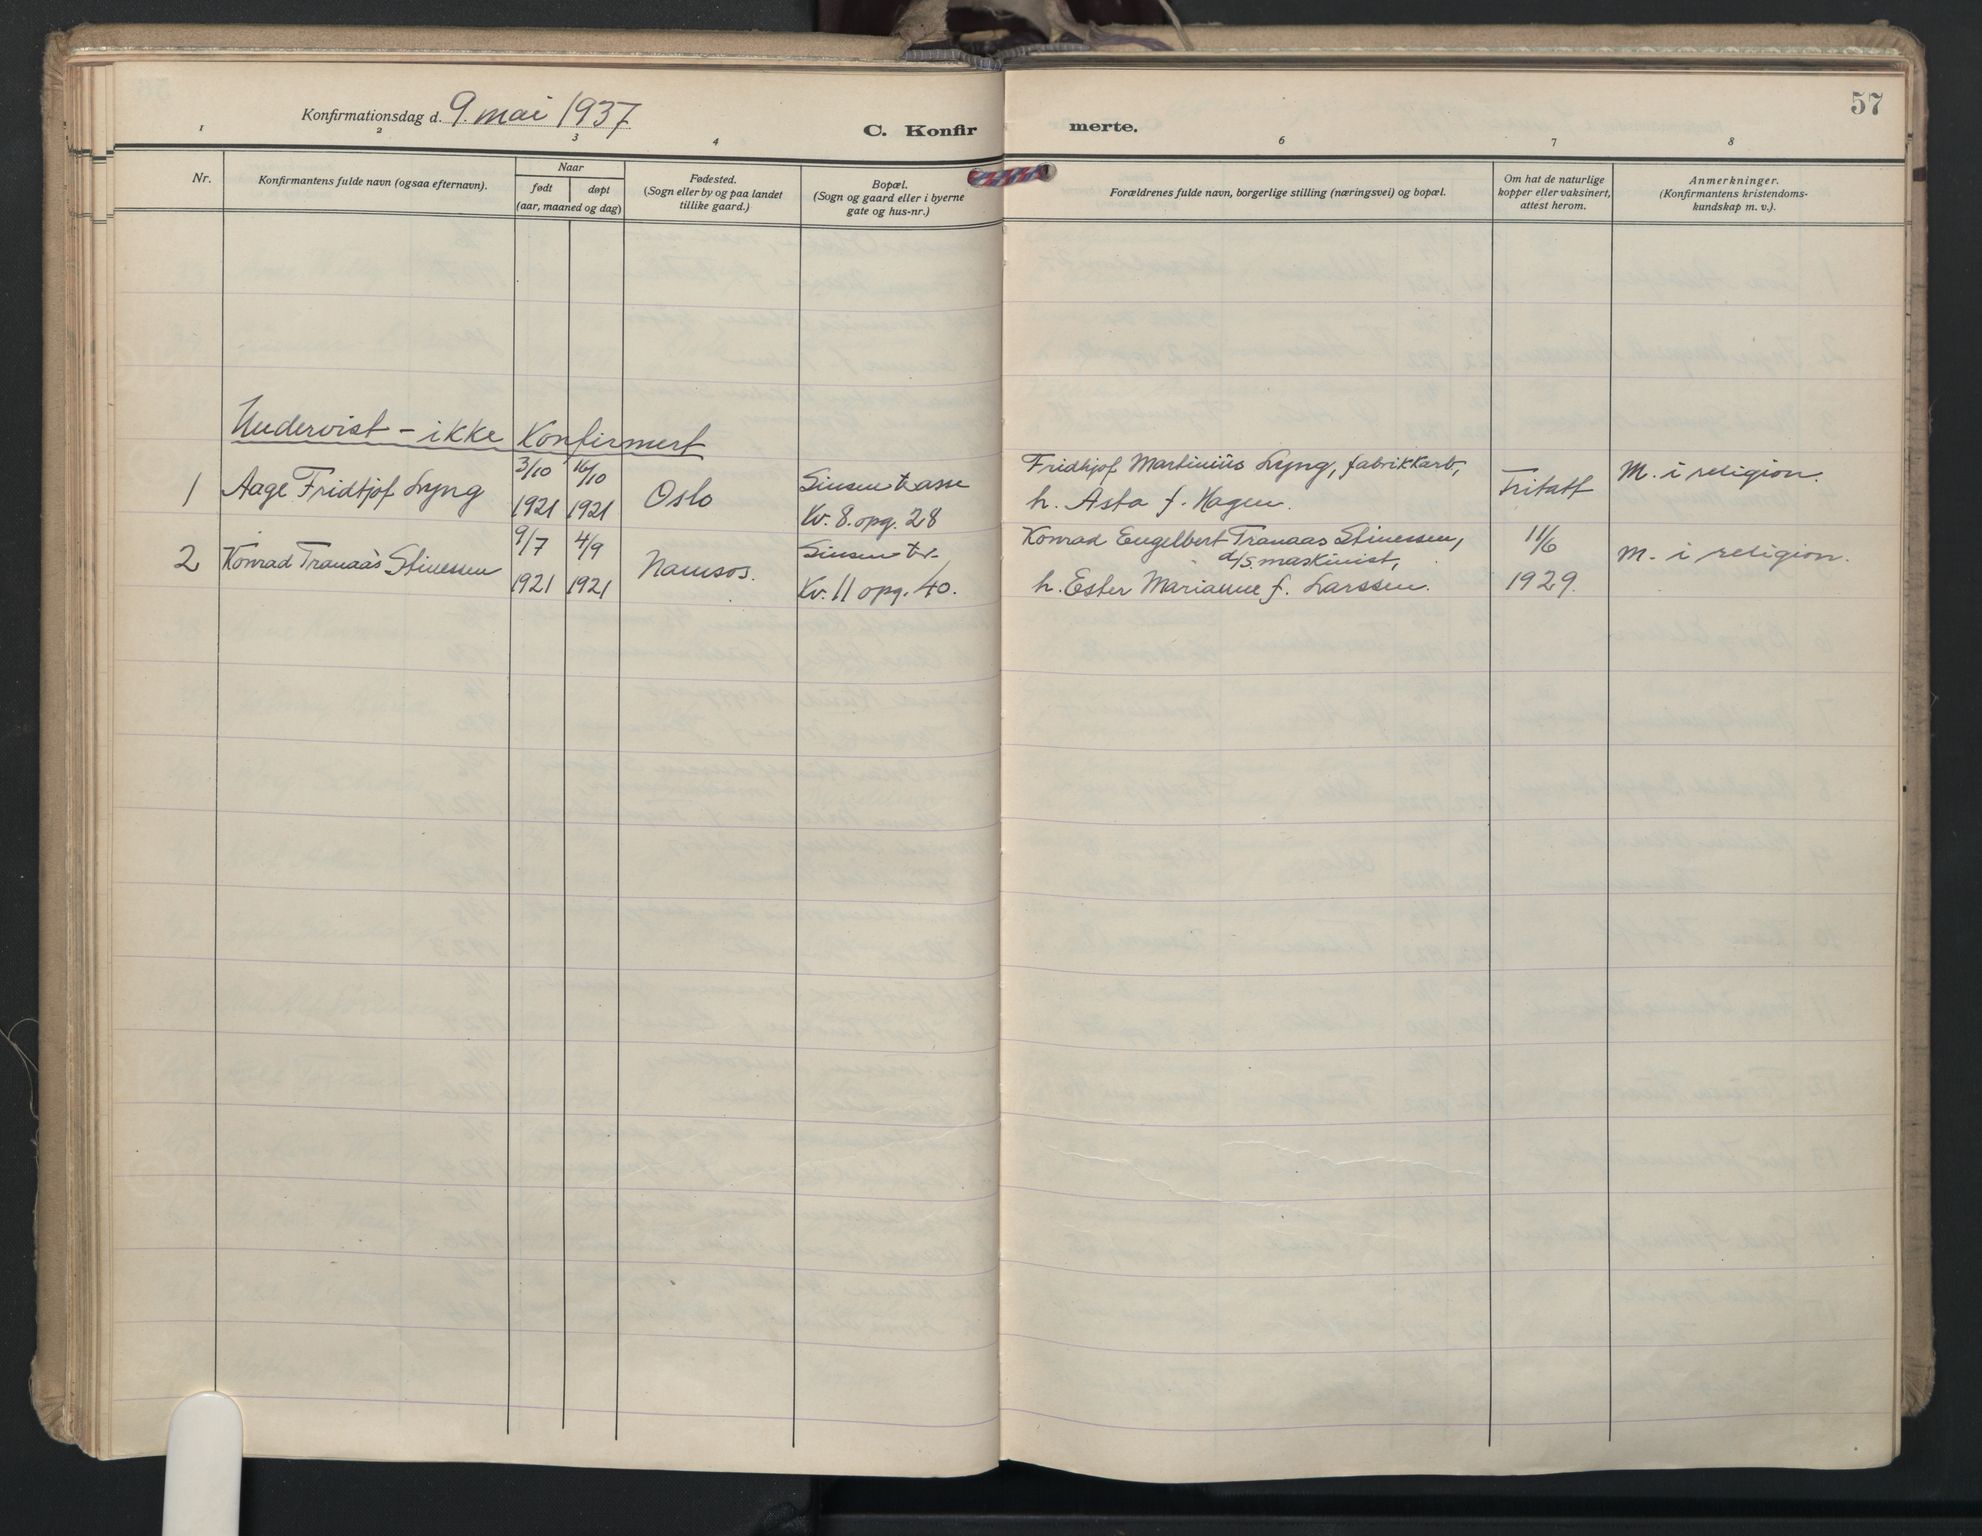 57
Konfirmationsdag d. 9. mai 1937
C. Konfir merte.
1 2 3 4 6 7 8
Nr.
Konfirmantens fulde navn (ogsaa efternavn).
Naar
født døpt
(aar, maaned og dag)
Fødested.
(Sogn eller by og paa landet
tillike gaard.)
Bopæl.
(Sogn og gaard eller i byerne
gate og hus-nr.)
Forældrenes fulde navn, borgerlige stilling (næringsvei) og bopæl.
Om hat de naturlige
kopper eller vaksinert,
attest herom.
Anmerkninger.
(Konfirmantens kristendoms-
kundskap m. v.).
Undervist - ikke Konfirmert
1 Aage Fridtjof Lyng
3/10 16/10
1921 1921
Oslo
Sinsen trasse
Kv. 8. opg. 28
Fridtjof Martinius Lyng, fabrikkarb,
h. Asta f. Hagen.
Fritatt
M. i religion.
2 Konrad Tranaas Stinessen
9/7 4/9
1921 1921
Namsos.
Sinsen tr.
Kv. 11 opg. 40.
Konrad Engelbert Tranaas Stinessen,
d/s. maskinist,
h. Ester Marianne f. Larssen.
11/6
1929.
M. i religion.